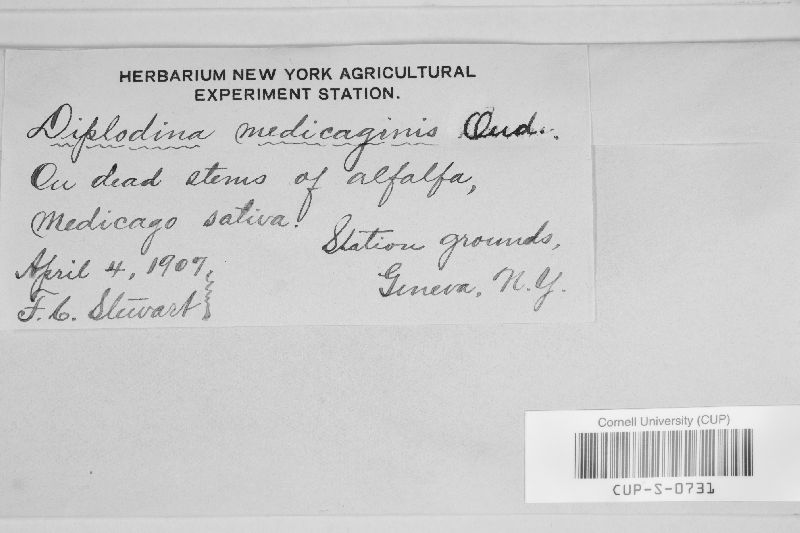 HERBARIUM NEW YORK AGRICULTURAL
EXPERIMENT STATION.
Diplodina medicaginis Oud.
On dead stems of alfalfa,
Medicago sativa.
Station grounds,
Geneva, N.Y.
April 4, 1907,
F.C. Stewart
Cornell University (CUP)
CUP-S-0731